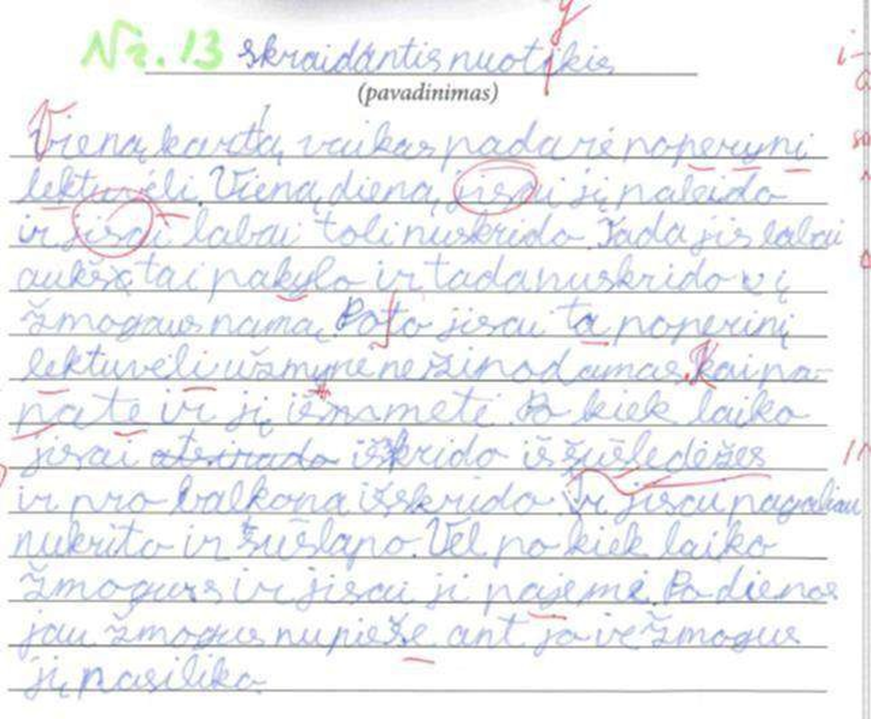 Nr. 13 skraidantis nuotikis
(pavadinimas)
Vieną kartą, vaikas padarė noperynį
lektuvėli. Vieną dieną, jisai jį paleido
ir jisai labai toli nuskrido. Tada jis labai
aukštai pakylo ir tada nuskrido į
žmogaus namą. Poto jisai ta poperinį
lektuveli užmynė nežinodamas. Kai pa-
matė ir jį išmmetė. Po kiek laiko
jisai atsirado iškrido iš šiūšledėžes
ir pro balkoną išskrido. Ir jisai pagaliau
nukrito ir sušlapo. Vel po kiek laiko
žmogus ir jisai ji pajėmė. Po dienos
jau žmogus nupiešė ant jo ir žmogus
jį pasiliko